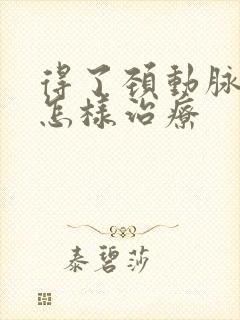 得了頚動脉
怎樣治療
泰碧莎